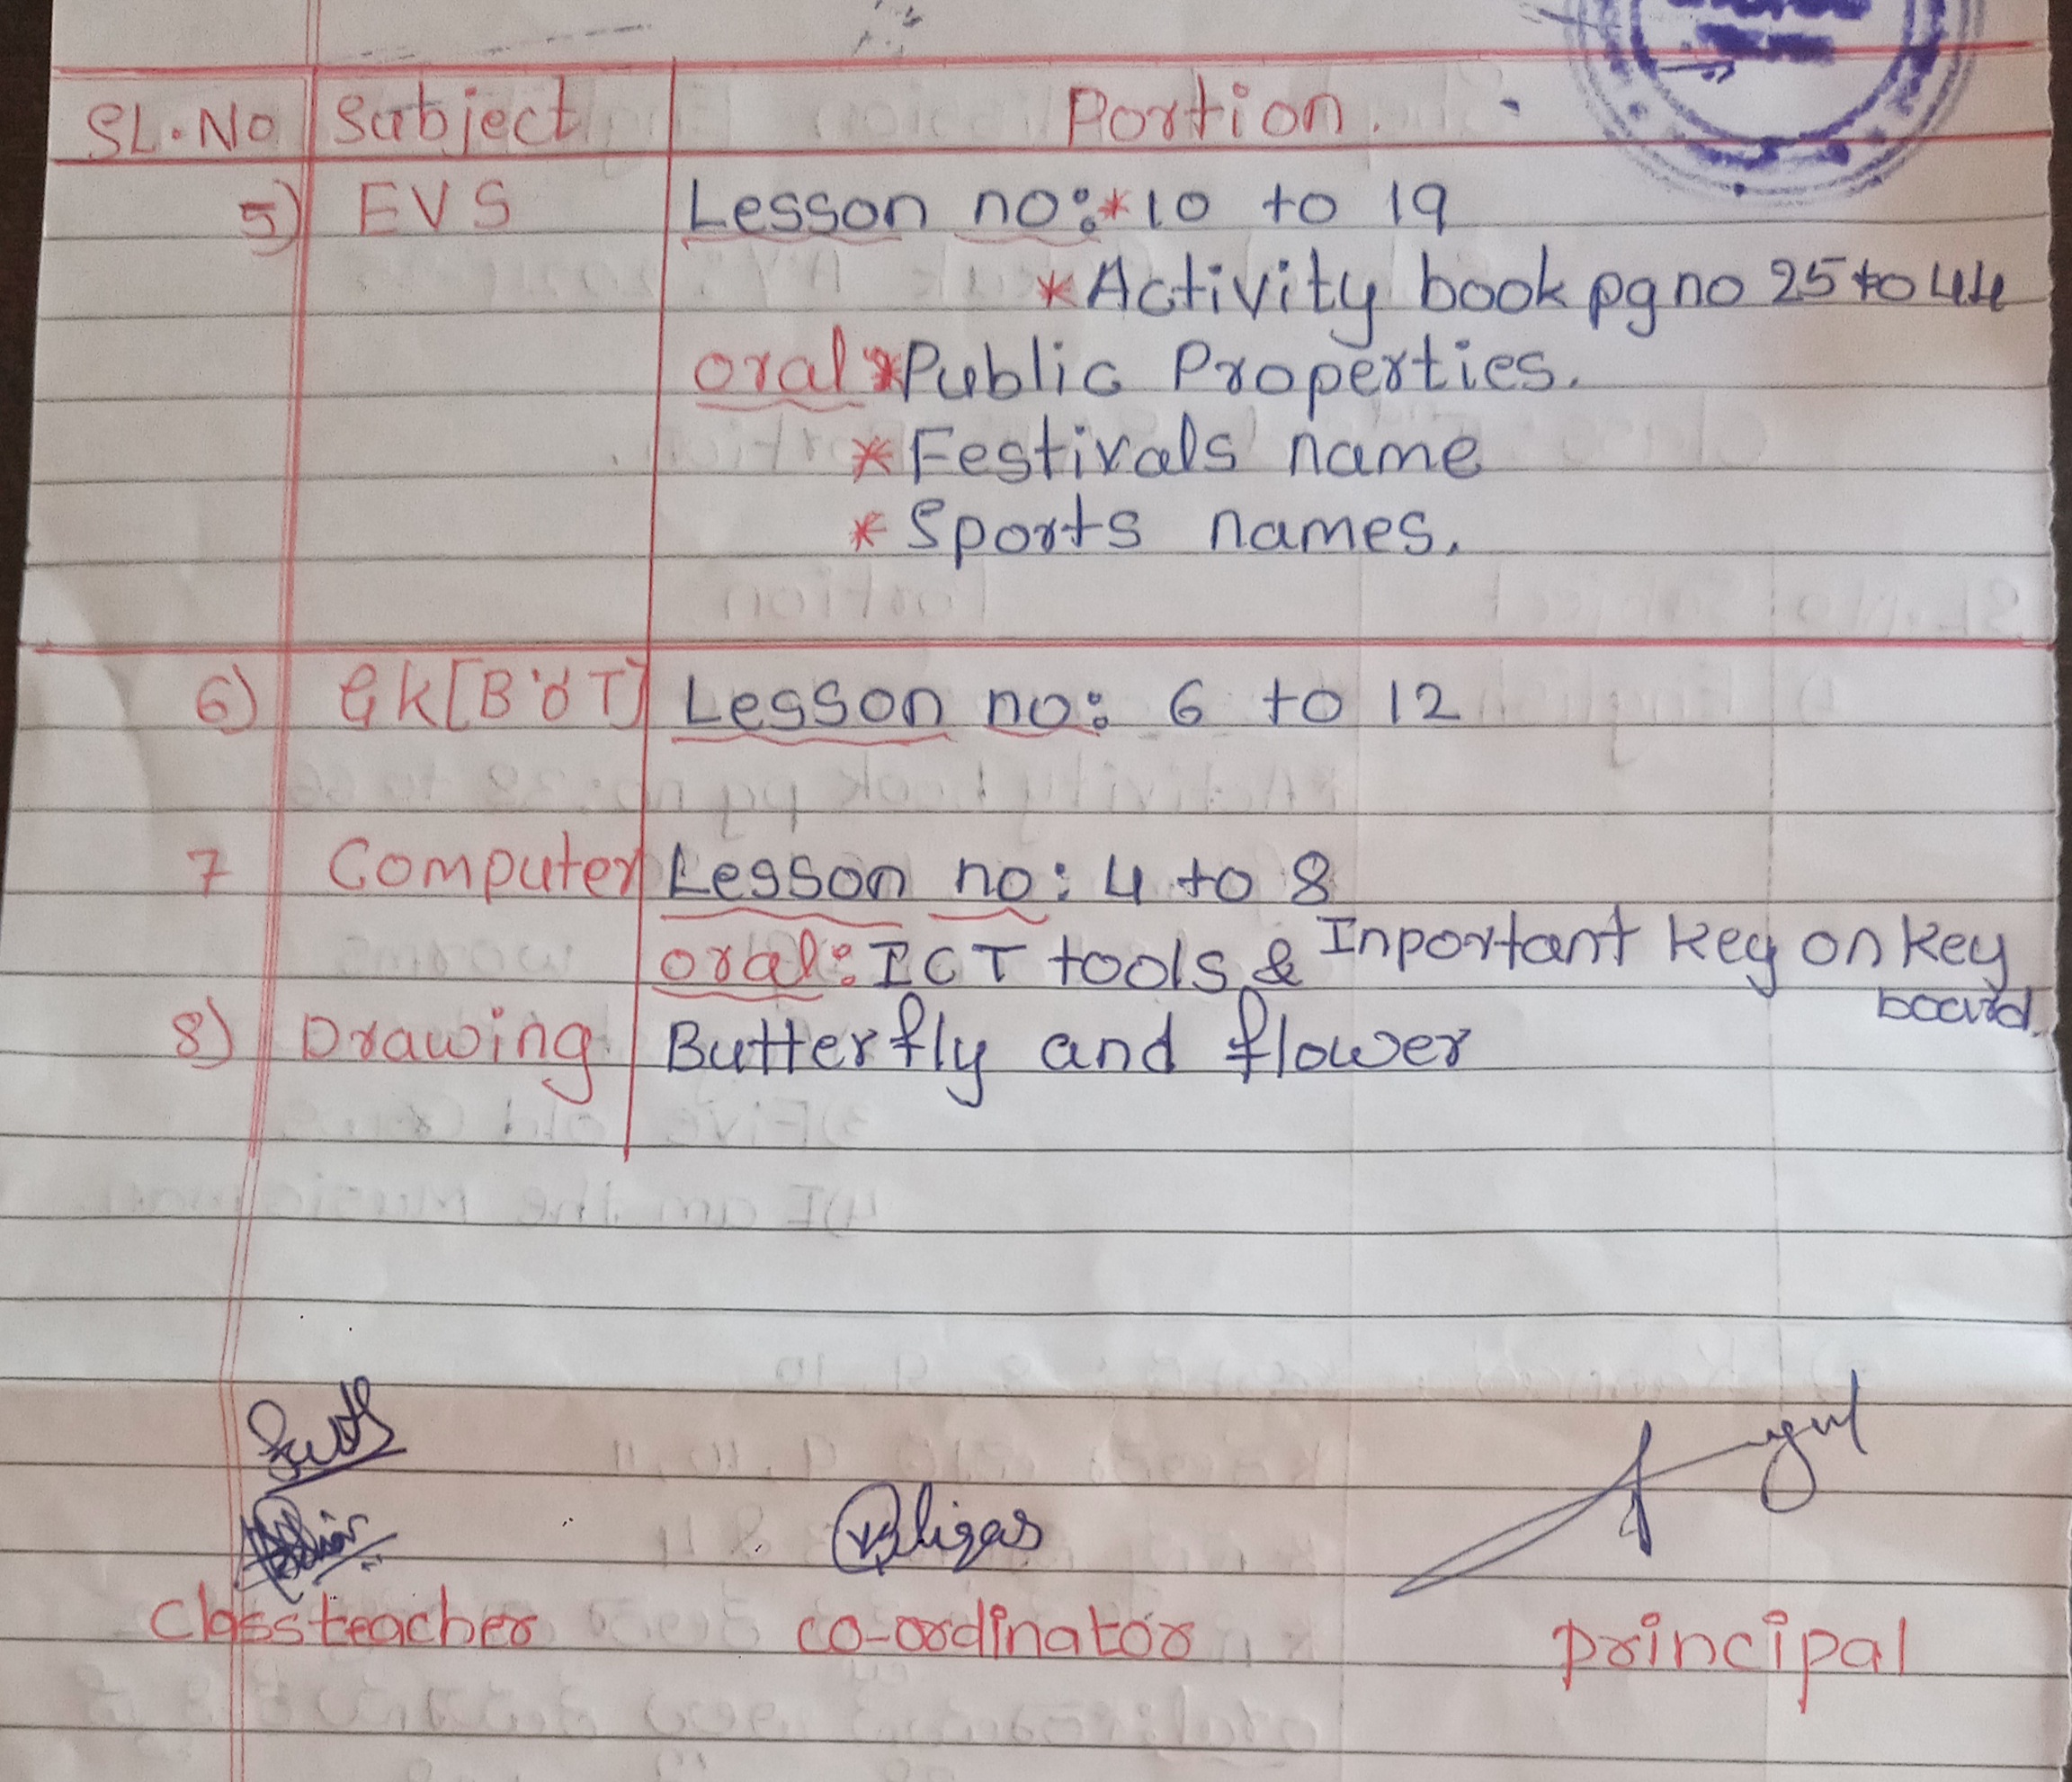 SL.No Subject Portion.
5) EVS Lesson no:*10 to 19
*Activity book pg no 25 to 44
oral *Public Properties.
*Festivals name
*Sports names.
6) Gk[B'dT] Lesson no: 6 to 12
7 Computer Lesson no: 4 to 8
oral: ICT tools & Inportant key on key
board.
8) Drawing Butterfly and flower
Classteacher co-ordinator principal